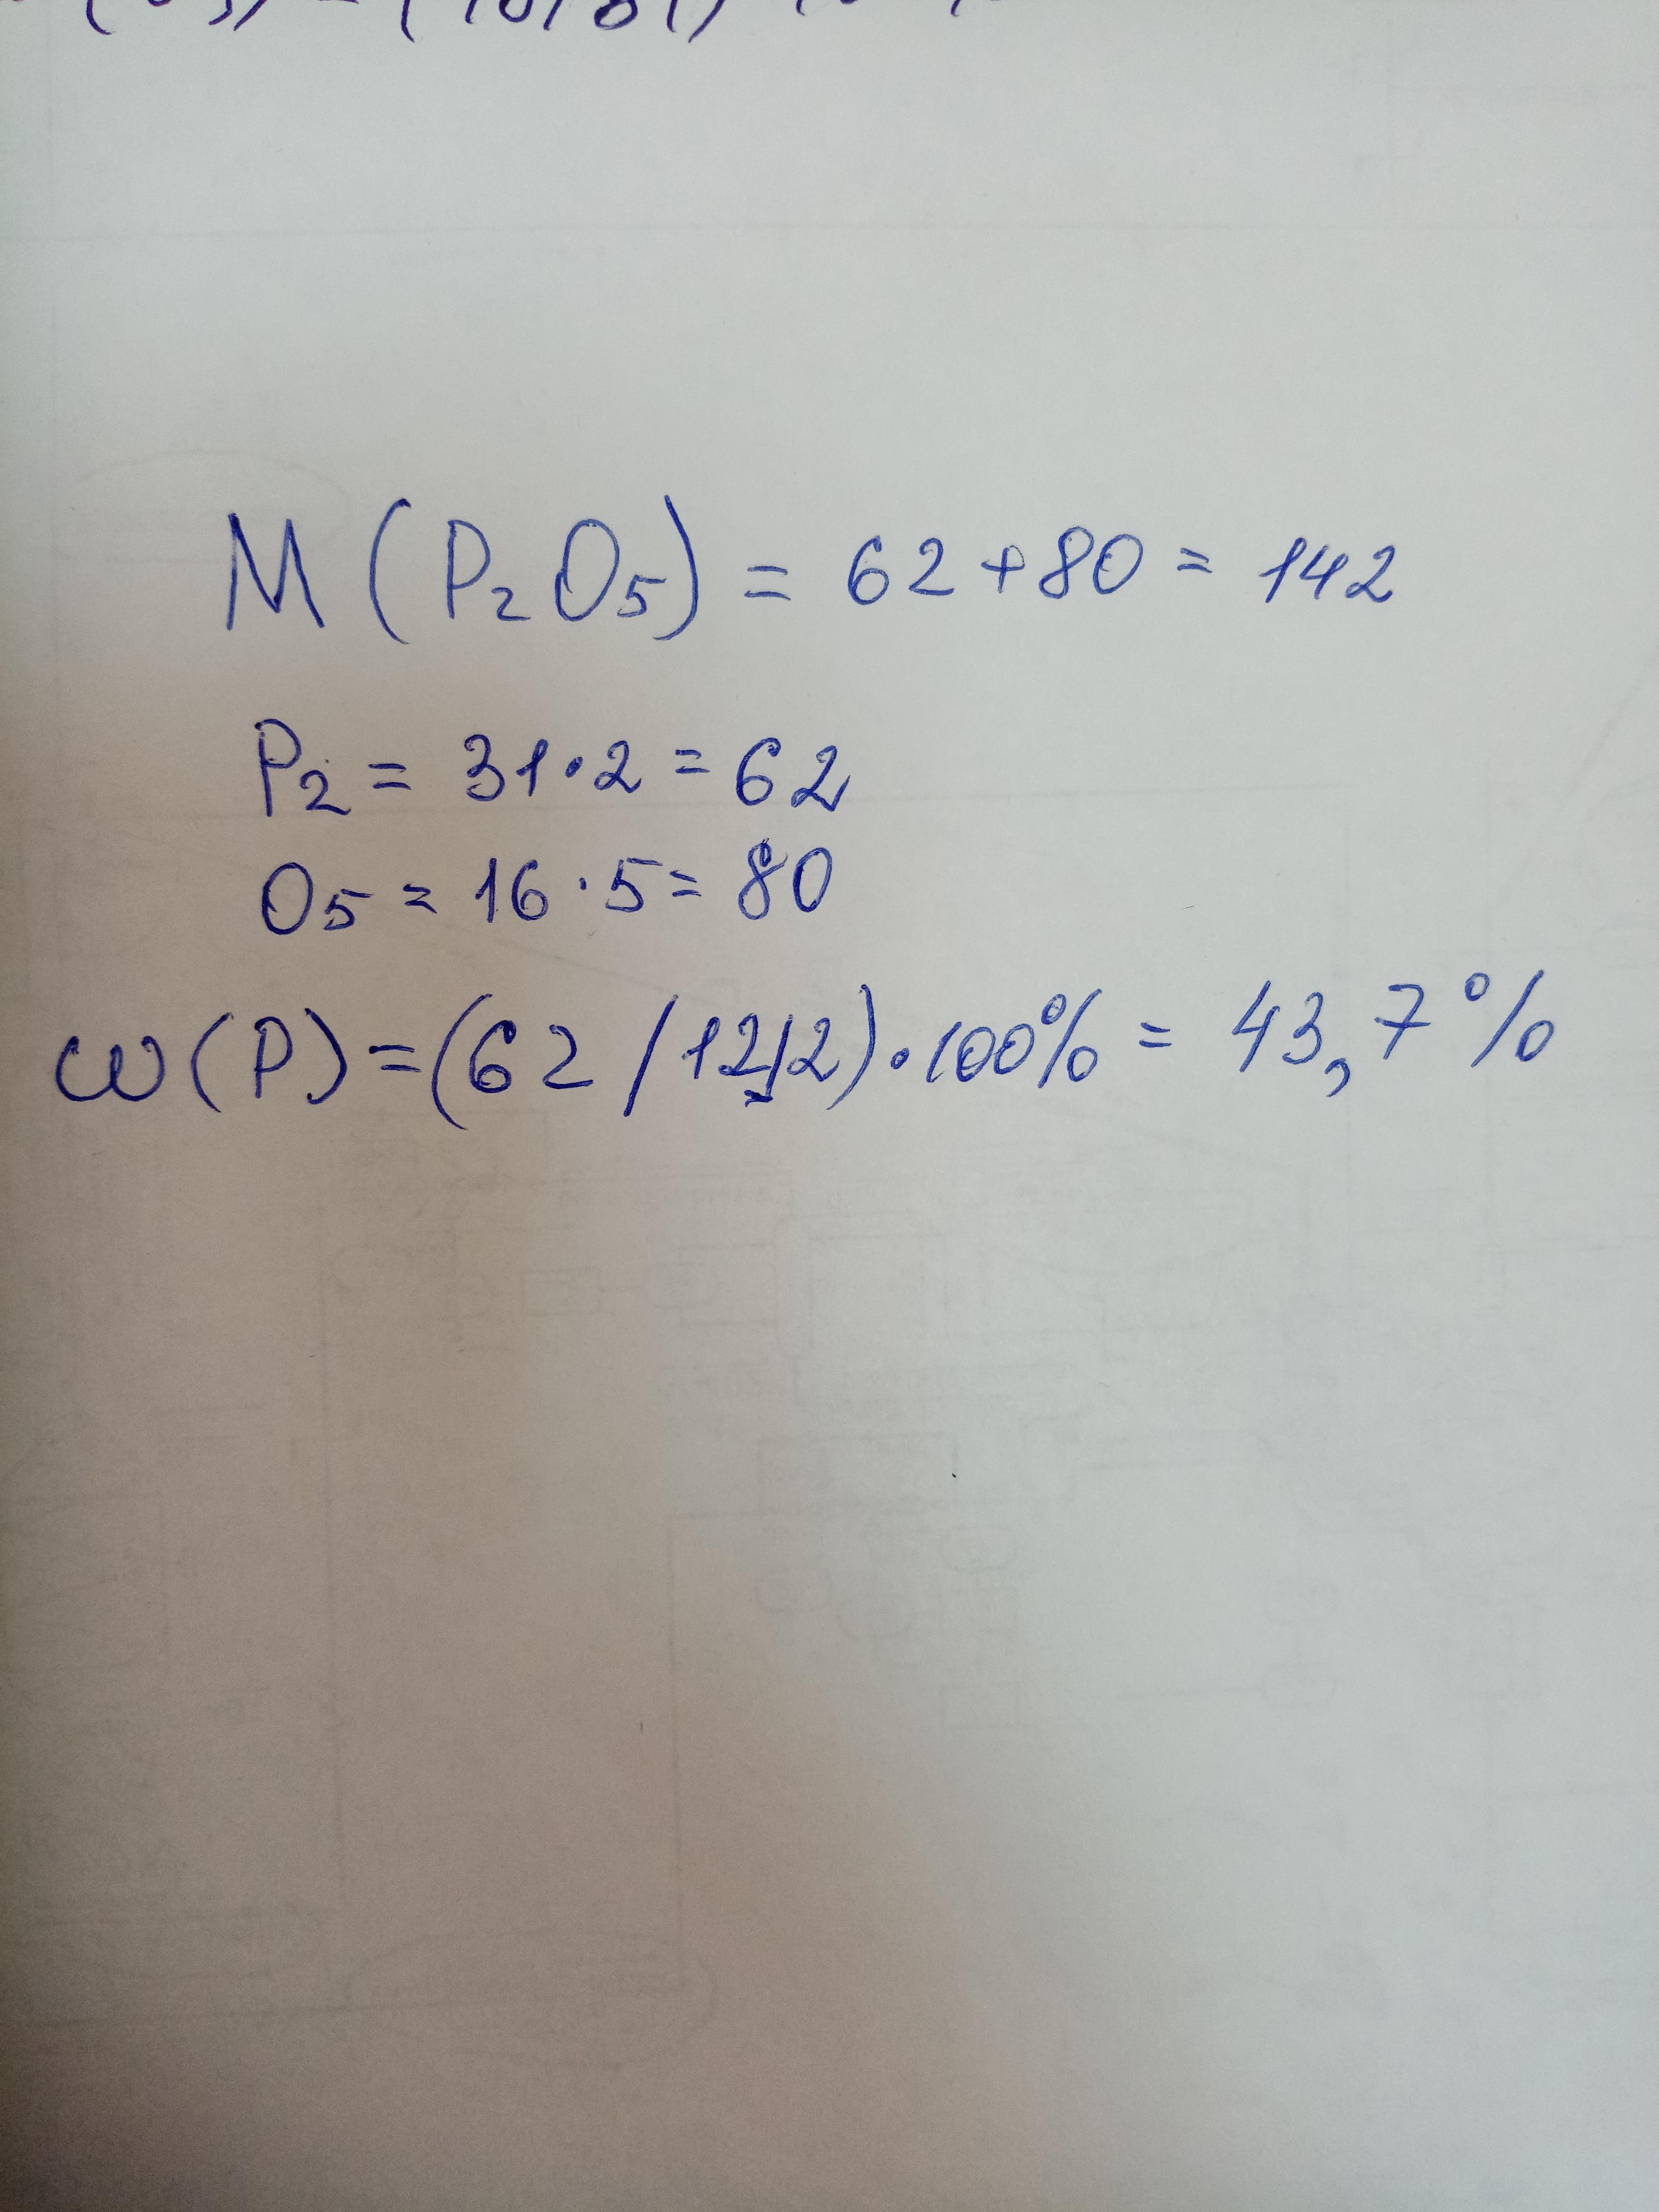 M(P₂O₅) = 62+80 = 142
P₂ = 31·2 = 62
O₅ = 16·5 = 80
ω(P) = (62/142)·100% = 43,7%